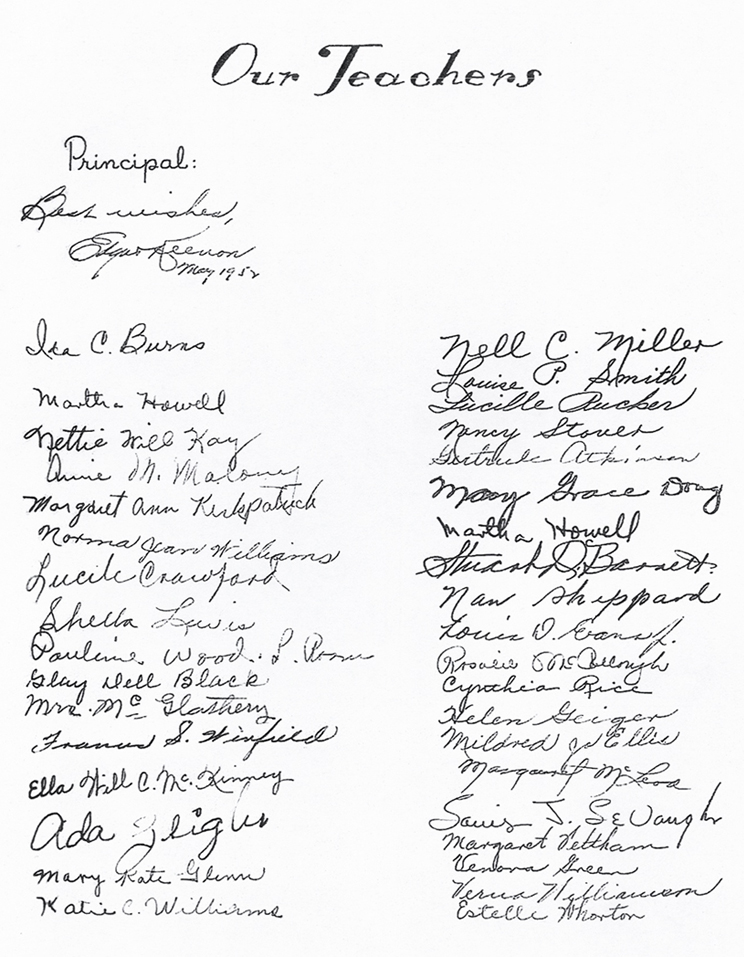 Our Teachers
Principal:
Best wishes,
Edgar Keenon
May 1952
Ida C. Burns
Martha Howell
Nettie Will Kay
Annie M. Maloney
Margaret Ann Kirkpatrick
Norma Jean Williams
Lucile Crawford
Shella Lewis
Pauline Wood L.
Glay Dell Black
Mrs. Mc Glathery
Frances S. Winfield
Ella Will C. McKinney
Ada Zeigler
Mary Kate Glenn
Katie C. Williams
Nell C. Miller
Louise P. Smith
Lucille Rucker
Nancy Stover
Gertrude Atkinson
Mary Grace Doug
Martha Howell
Stuart D. Barnett
Nan Sheppard
Louis D. Evans Jr.
Rosalie McCullough
Cynthia Rice
Helen Geiger
Mildred Ellis
Margaret McLeod
J. SeVaughn
Margaret
Venora Green
Verna Williamson
Estelle Whorton